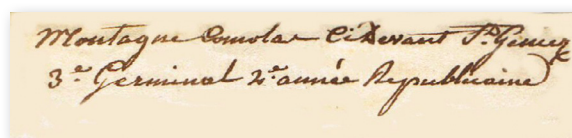 Montagne Comolar Cidevant St. Geniez
3e. Germinal 2e. année Republicaine